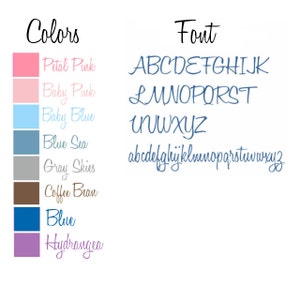 Colors
Petal Pink
Baby Pink
Baby Blue
Blue Sea
Gray Skies
Coffee Bean
Blue
Hydrangea
Font
ABCDEFGHIJK
LMNOPQRST
UVWXYZ
abcdefghijklmnopqrstuvwxyz